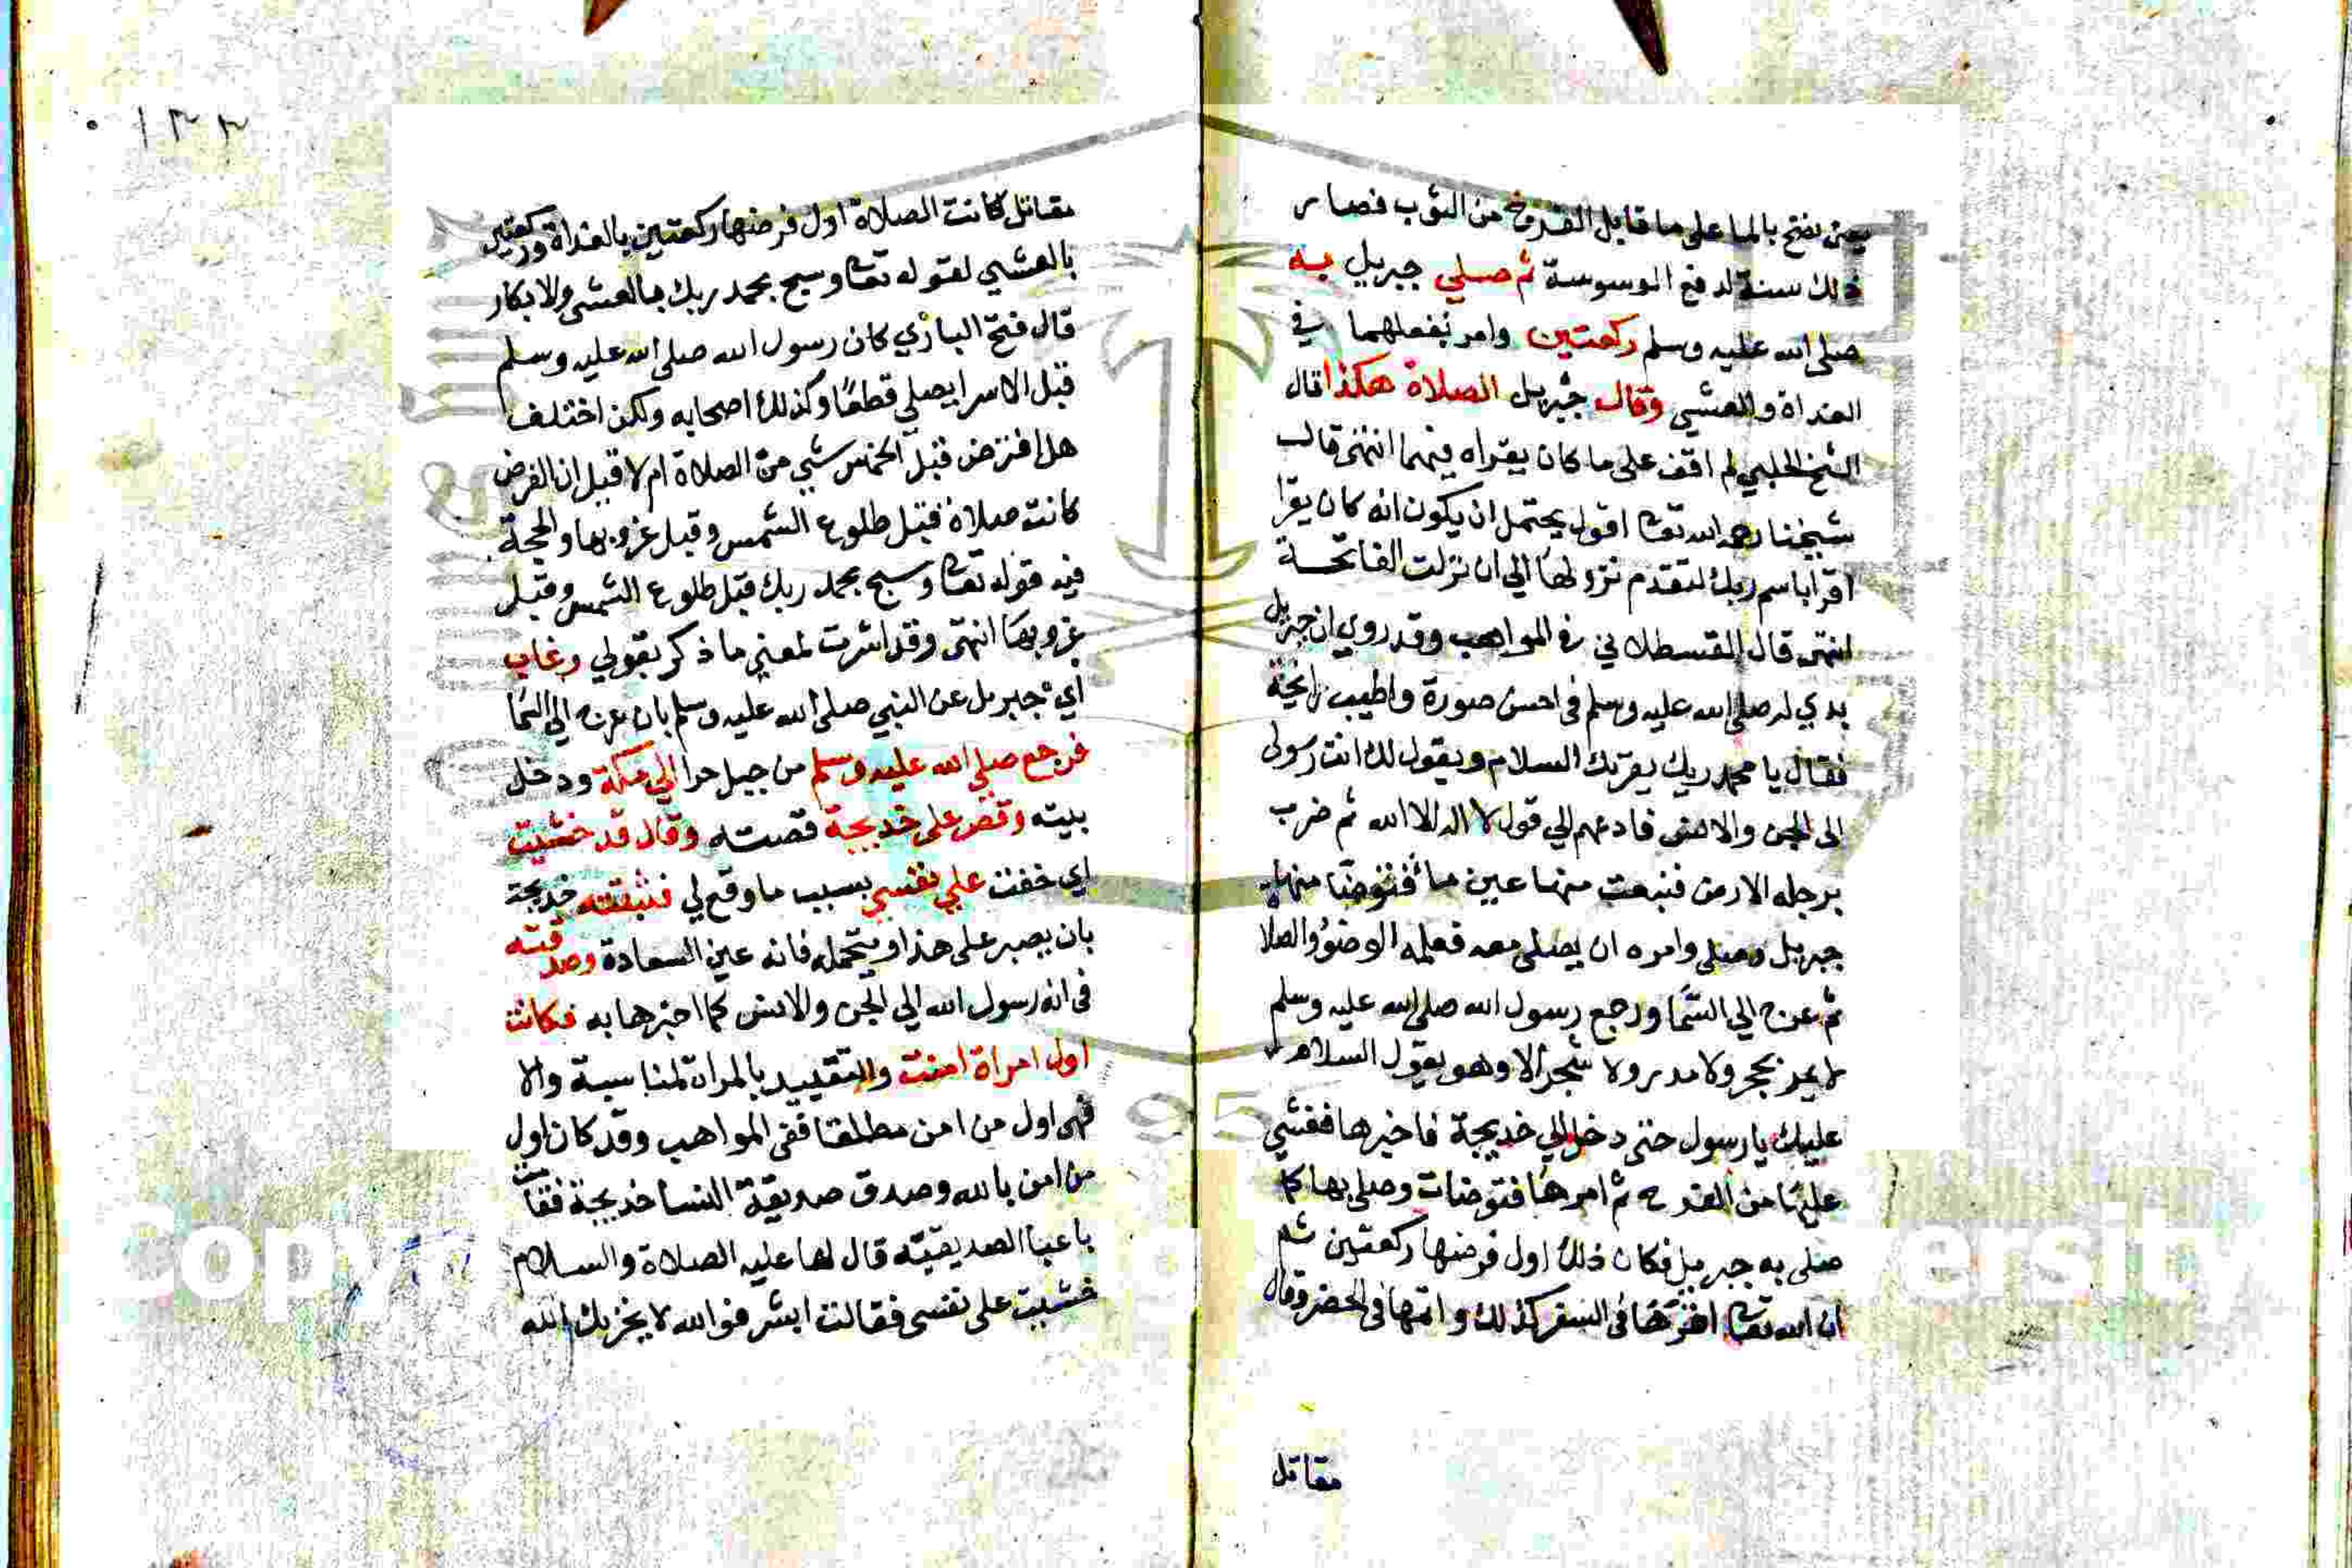 يعني نضح بالما على ما قابل الفرج من الثوب فصار
ذلك سنة لدفع الوسوسة ثم صلي جبريل به
صلى الله عليه وسلم ركعتين وامر بفعلهما في
الغداة والعشي وقال جبريل الصلاة هكذا قال
الشيخ الحلبي لم اقف على ما كان يقراه فيهما انتهى قال
شيخنا رحمه الله تعالى اقول يحتمل ان يكون انه كان يقرا
اقرا باسم ربك لتقدم نزولها الي ان نزلت الفاتحة
انتهى قال القسطلاني في المواهب وقد روي ان جبريل
بدي له صلى الله عليه وسلم في احسن صورة واطيب رايحة
فقال يا محمد ربك يقريك السلام ويقول لك انت رسولى
الى الجن والانس فادعهم الي قول لا اله الا الله ثم ضرب
برجله الارض فنبعت منها عين ما فتوضا منها
جبريل وصلى وامره ان يصلى معه فعلمه الوضؤ والصلا
ثم عرج الي السما ورجع رسول الله صلى الله عليه وسلم
لا يمر بحجر ولا مدر ولا شجر الا وهو يقول السلام
عليك يا رسول حتى دخل الي خديجة فاخبرها فغشي
عليها من الفرح ثم امرها فتوضات وصلى بها كما
صلى به جبريل فكان ذلك اول فرضها ركعتين ثم
ان الله تعالى اقرها في السفر كذلك واتمها في الحضر وقال
مقاتل
١٣٣
مقاتل كانت الصلاة اول فرضها ركعتين بالغداة وركعتين
بالعشي لقوله تعالى وسبح بحمد ربك بالعشى والابكار
قال فتح الباري كان رسول الله صلى الله عليه وسلم
قبل الاسرا يصلي قطعًا وكذلك اصحابه ولكن اختلف
هل افترض قبل الخمس شي من الصلاة ام لا قيل ان الفرض
كانت صلاة قبل طلوع الشمس وقبل غروبها والحجة
فيه قوله تعالى وسبح بحمد ربك قبل طلوع الشمس وقبل
غروبها انتهى وقد اشرت لمعني ما ذكر بقولي وغاب
اي جبريل عن النبي صلى الله عليه وسلم بان عرج الي السما
فرجع صلى الله عليه وسلم من جبل حرا الي مكة ودخل
بيته وقص على خديجة قصته وقال قد خشيت
اي خفت علي نفسي بسبب ما وقع لي فثبتته خديجة
بان يصبر على هذا ويتحمله فانه عين السعادة وصدقته
في انه رسول الله الي الجن والانس كما اخبرها به فكانت
اول امراة امنت والتقييد بالمراة لمناسبة والا
فهى اول من امن مطلقا ففى المواهب وقد كان اول
من امن بالله وصدق صديقة النسا خديجة فقامت
باعبا الصديقية قال لها عليه الصلاة والسلام
خشيت على نفسى فقالت ابشر فوالله لا يخزيك الله